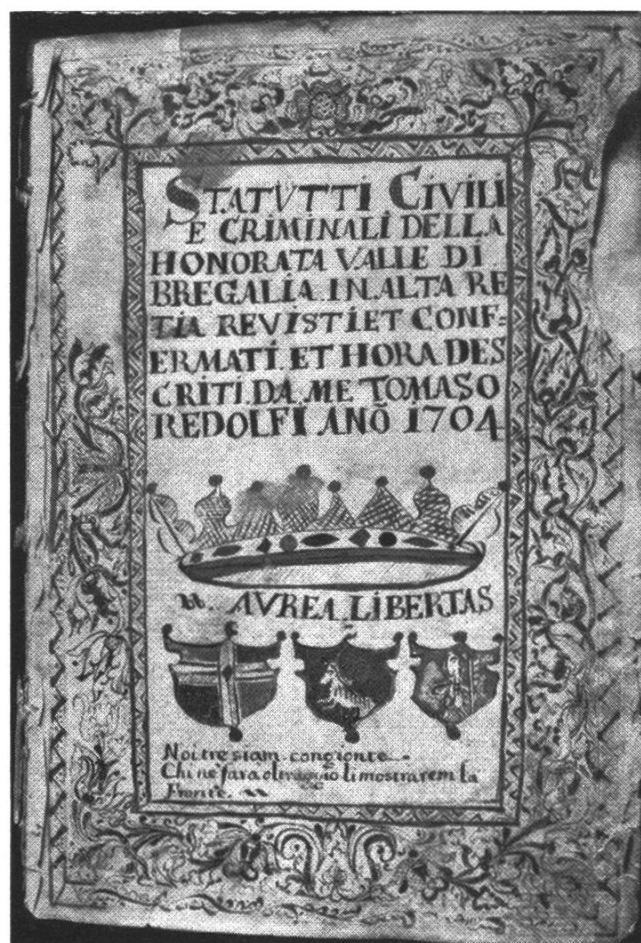 STATVTTI CIVILI
E CRIMINALI DELLA
HONORATA VALLE DI
BREGALIA. IN. ALTA RE
TIA REVISTI ET CONF=
ERMATI. ET HORA DES
CRITI. DA. ME TOMASO
REDOLFI ANÕ 1704
AVREA LIBERTAS
Noi tre siam congionte
Chi ne fara oltraggio li mostrarem la
Fronte.